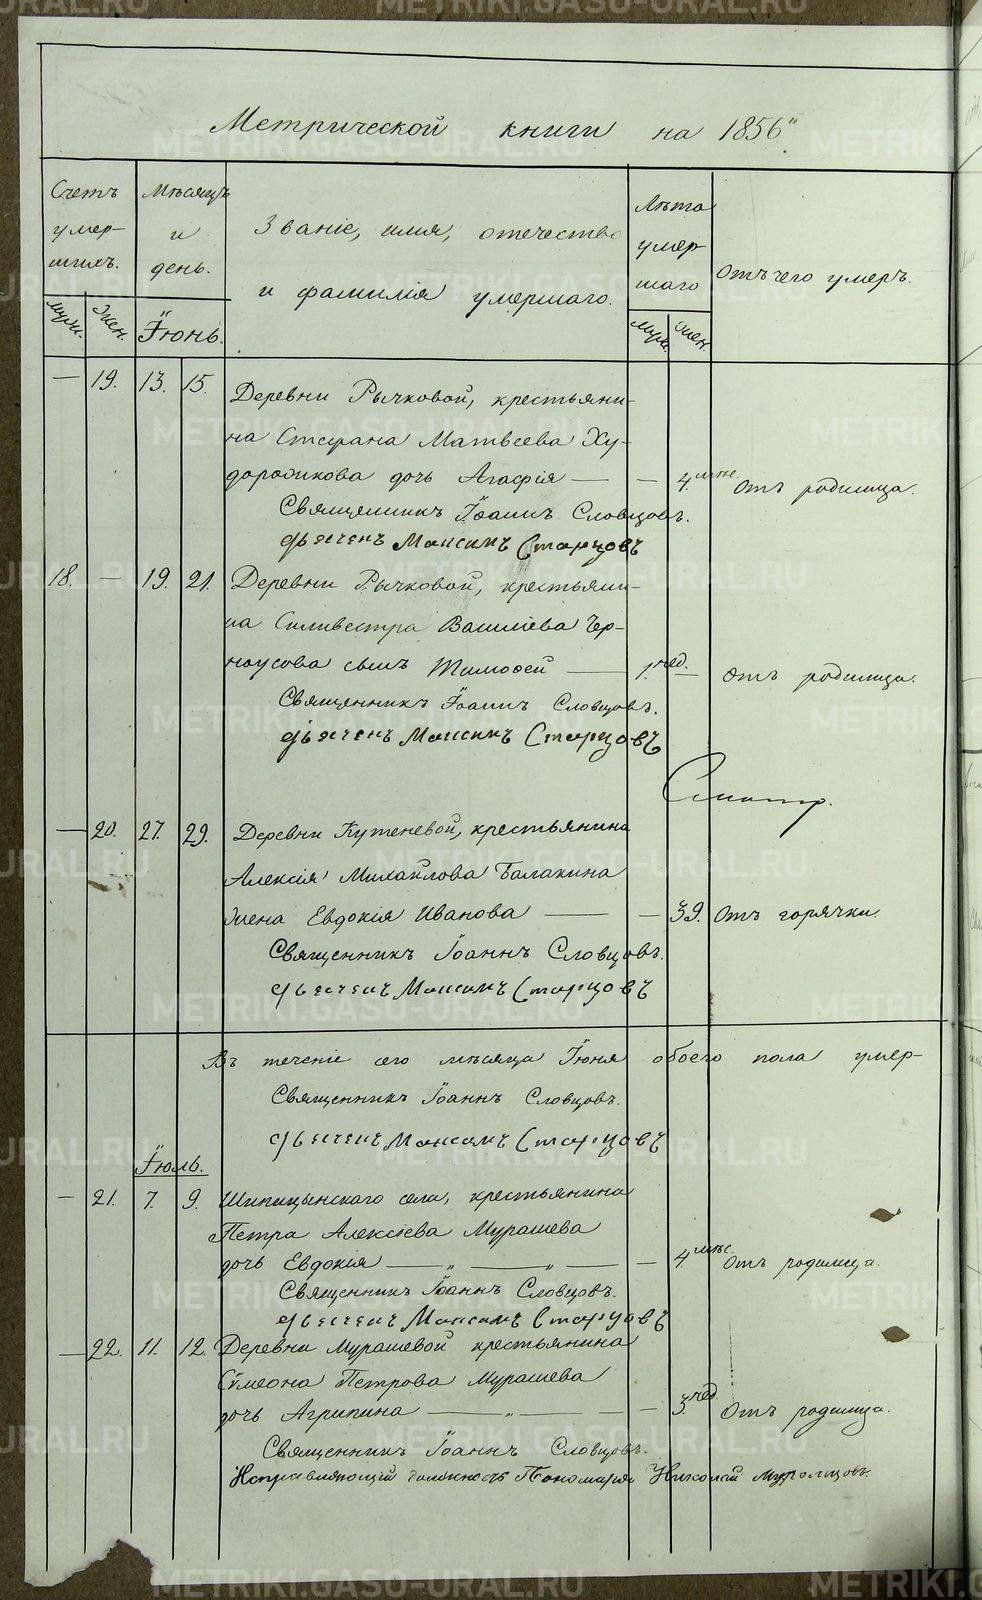 Метрической книги на 1856
Счетъ умершихъ.
Мѣсяцъ и день.
Званіе, имя, отечество
и фамилія умершаго.
Лѣта умершаго
Отъ чего умеръ.
муж. жен.
Іюнь.
муж. жен.
— 19. 13. 15. Деревни Рычковой, крестьяни-
на Стефана Матвеева Ху-
дорожкова дочь Агафія — — 4. мѣс. Отъ родимца.
Священникъ Іоаннъ Словцовъ.
Дьячекъ Максимъ Старцовъ
18. — 19. 21. Деревни Рычковой, крестьяни-
на Силивестра Василіева Чер-
ноусова сынъ Тимофей — 1. нед. — Отъ родимца.
Священникъ Іоаннъ Словцовъ.
Дьячекъ Максимъ Старцовъ
— 20. 27. 29. Деревни Кутеневой, крестьянина
Алексія Михайлова Балакина
жена Евдокія Иванова — — 39. Отъ горячки.
Священникъ Іоаннъ Словцовъ.
Дьячекъ Максимъ Старцовъ
Въ теченіе сего мѣсяца Іюня обоего пола умер-
Священникъ Іоаннъ Словцовъ.
Дьячекъ Максимъ Старцовъ
Іюль.
— 21. 7. 9. Шипицынскаго села, крестьянина
Петра Алексіева Мурашева
дочь Евдокія — „ — „ — — 4. мѣс. Отъ родимца.
Священникъ Іоаннъ Словцовъ.
Дьячекъ Максимъ Старцовъ
— 22. 11. 12. Деревни Мурашевой крестьянина
Сѵмеона Петрова Мурашева
дочь Агрипина — „ — — 3. нед. Отъ родимца.
Священникъ Іоаннъ Словцовъ.
Исправляющій должность Пономаря Николай
METRIKI.GASO-URAL.RU